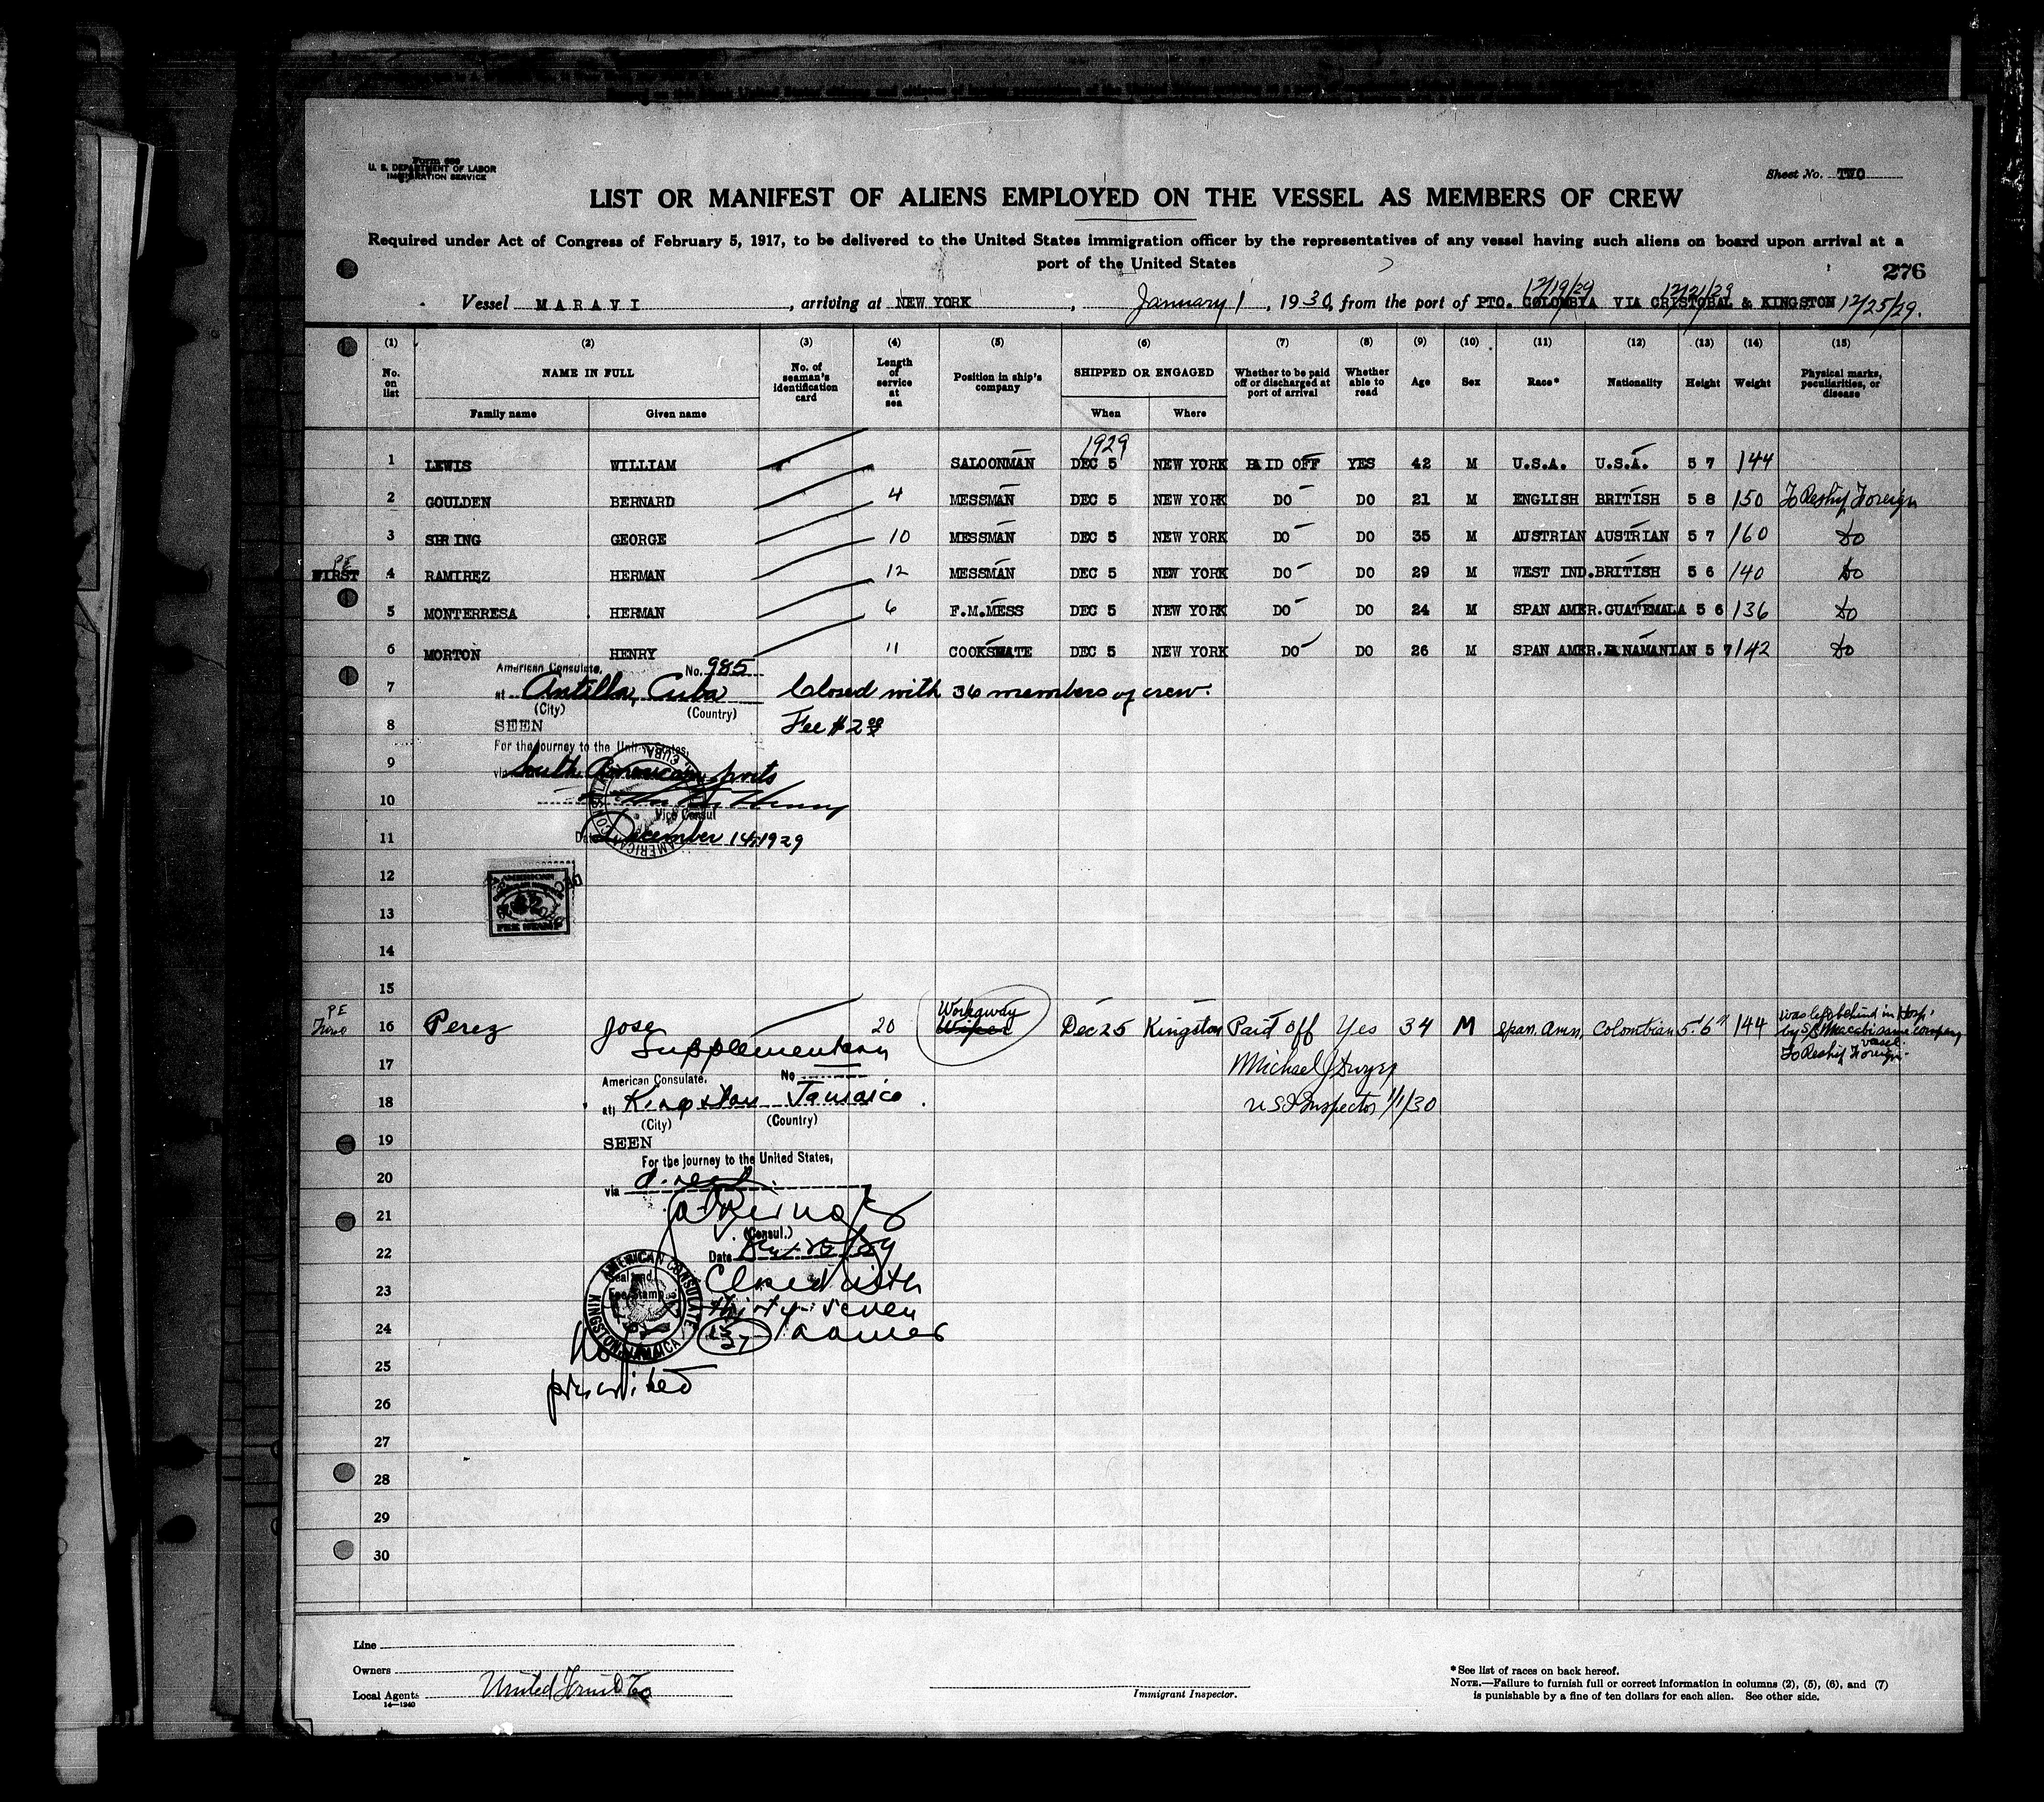 Form 680
U. S. DEPARTMENT OF LABOR
IMMIGRATION SERVICE
Sheet No. TWO
LIST OR MANIFEST OF ALIENS EMPLOYED ON THE VESSEL AS MEMBERS OF CREW
Required under Act of Congress of February 5, 1917, to be delivered to the United States immigration officer by the representatives of any vessel having such aliens on board upon arrival at a
port of the United States
276
12/19/29 12/21/29
Vessel MARAVI, arriving at NEW YORK, January 1, 1930, from the port of PTO. COLOMBIA VIA CRISTOBAL & KINGSTON 12/25/29.
(1) (2) (3) (4) (5) (6) (7) (8) (9) (10) (11) (12) (13) (14) (15)
No. on list NAME IN FULL No. of seaman's identification card Length of service at sea Position in ship's company SHIPPED OR ENGAGED Whether to be paid off or discharged at port of arrival Whether able to read Age Sex Race* Nationality Height Weight Physical marks, peculiarities, or disease
Family name Given name When Where
1929
1 LEWIS WILLIAM SALOONMAN DEC 5 NEW YORK PAID OFF YES 42 M U.S.A. U.S.A. 5 7 144
2 GOULDEN BERNARD 4 MESSMAN DEC 5 NEW YORK DO DO 21 M ENGLISH BRITISH 5 8 150 To Reship Foreign
3 SPRING GEORGE 10 MESSMAN DEC 5 NEW YORK DO DO 35 M AUSTRIAN AUSTRIAN 5 7 160 Do
PE
FIRST 4 RAMIREZ HERMAN 12 MESSMAN DEC 5 NEW YORK DO DO 29 M WEST IND. BRITISH 5 6 140 Do
5 MONTERRESA HERMAN 6 F.M.MESS DEC 5 NEW YORK DO DO 24 M SPAN AMER. GUATEMALA 5 6 136 Do
6 MORTON HENRY 11 COOKSMATE DEC 5 NEW YORK DO DO 26 M SPAN AMER. PANAMANIAN 5 7 142 Do
American Consulate, No. 985
7 at Antilla, Cuba Closed with 36 members of crew.
(City) (Country)
8 SEEN Fee $2.00
For the journey to the United States,
9 via South American ports
10
Vice Consul
11 Date December 14, 1929
12
AMERICAN
13
FEE STAMP
14
15
PE
16 Perez Jose 20 Workaway Wiper Dec 25 Kingston Paid Off Yes 34 M Span. Amn. Colombian 5' 6" 144 was left behind in Hosp.
by S/S Macabi same company
vessel.
To Reship Foreign.
Supplementary
17 Michael J Dwyer
American Consulate. No
18 at Kingston Jamaica US Inspector 1/1/30
(City) (Country)
19 SEEN
For the journey to the United States,
20 via direct
21
(Consul.)
22 Date
23 Closed with
Seal and
Fee Stamp
AMERICAN CONSULATE KINGSTON, JAMAICA
thirty-seven
24 37 names
25 No
prescribed
26
27
28
29
30
Line
Owners
Local Agents United Fruit Co
14—1240
Immigrant Inspector.
*See list of races on back hereof.
NOTE.—Failure to furnish full or correct information in columns (2), (5), (6), and (7)
is punishable by a fine of ten dollars for each alien. See other side.